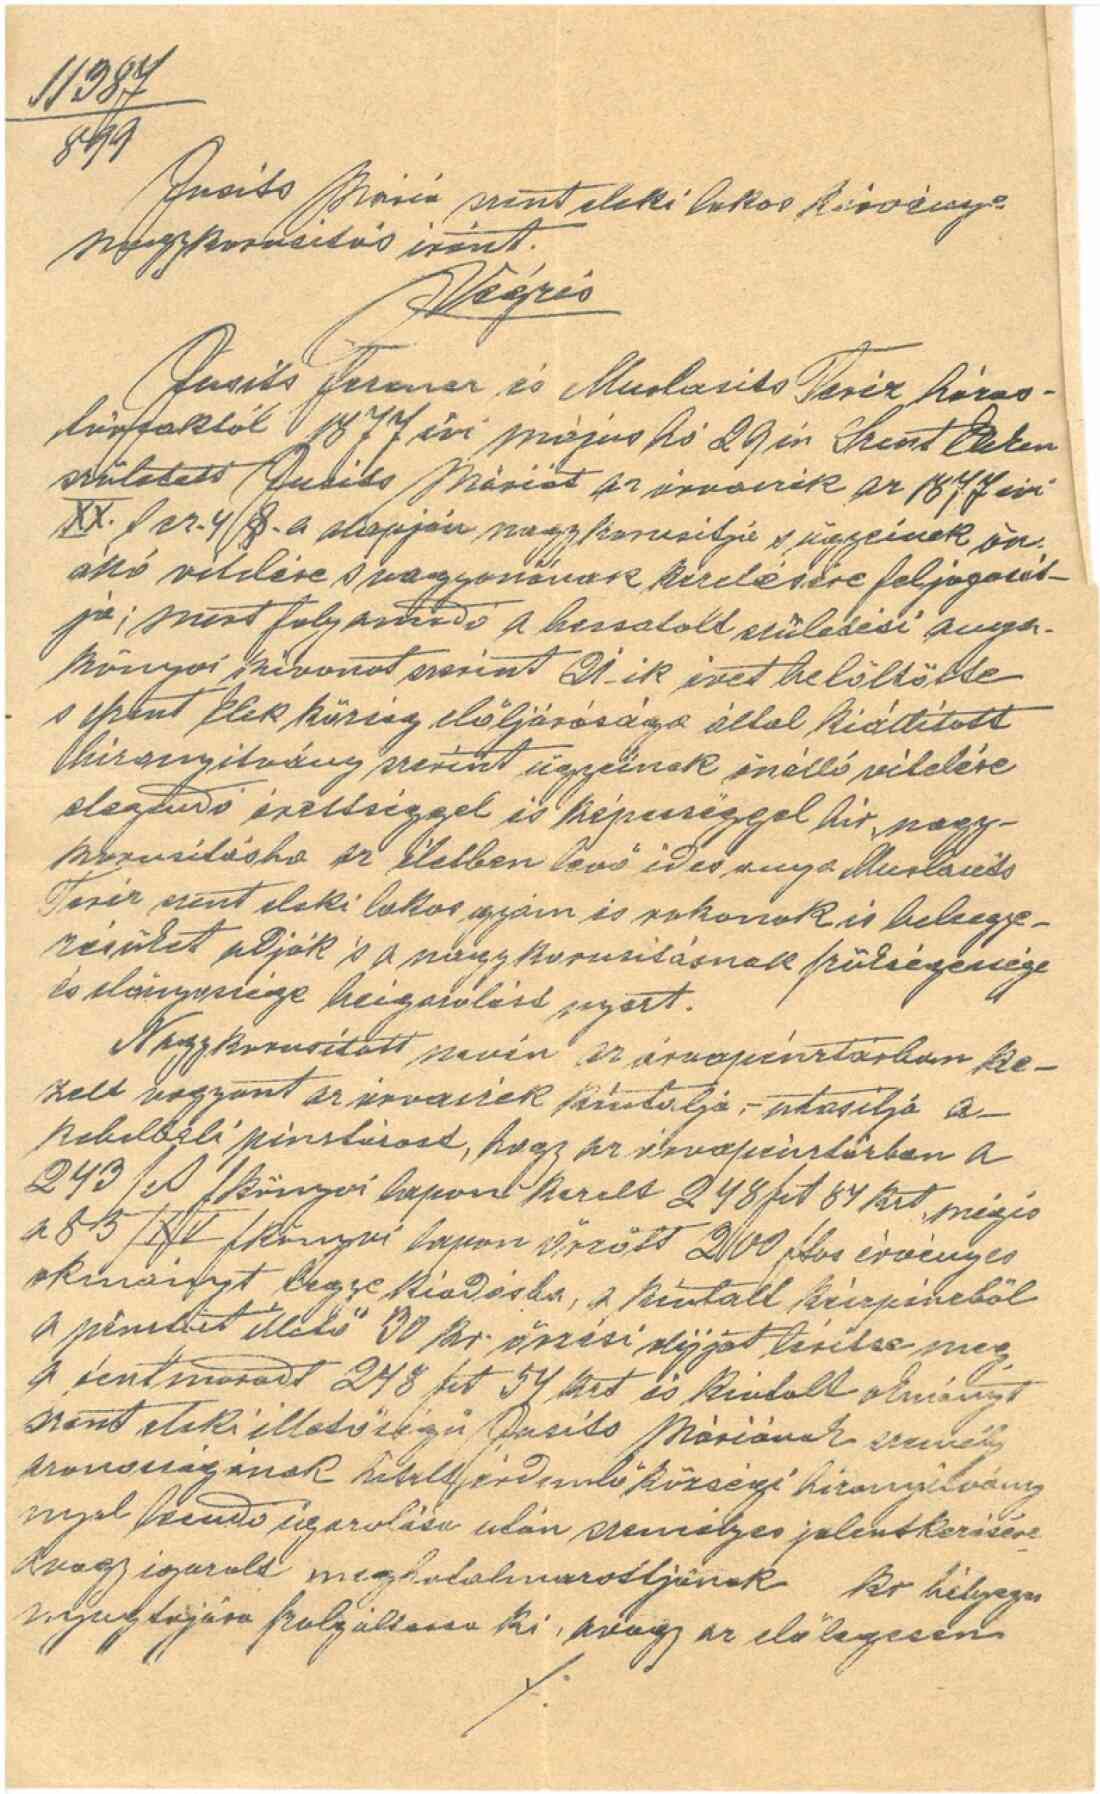 11387
899
Jusits Mária szent eleki lakos kérvénye
nagykorusitás iránt.
Végzés
Jusits Ferencz és Muslasits Teréz házas-
társaktól 1877 évi május hó 29 én Szent Eleken
született Jusits Máriát az árvaszék az 1877 évi
XX. t cz. 4 §. a alapján nagykorusitja s ügyeinek ön-
álló vitelére s vagyonának kezelésére feljogosít-
ja; mert folyamodó a becsatolt születési anya-
könyvi kivonat szerint 21-ik évet betöltötte
s Szent Elek község elöljárósága által kiállított
bizonyitvány szerint ügyeinek önálló vitelére
elegendő érettséggel és képességgel bír, nagy-
korusitásba az életben levő édes anya Muslasits
Teréz szent eleki lakos gyám és rokonok is beleegye-
zésüket adják s a nagykorusitásnak szükségessége
és előnyossége beigazolást nyert.
Nagykorusított nevén az árvapénztárban ke-
zelt vagyont az árvaszék kiutalja, - utasitja a
kebelbeli pénztárost, hogy az árvapénztárban a
243 / főkönyvi lapon kezelt 248 frt 84 krt, mégis
a 85 / XIV főkönyvi lapon őrzött 200 frtos érvényes
okmányt tegye kiadásba, a kiutalt készpénzből
a pénztárt illető 30 kr. őrzési díjját térítse meg
a fentmaradt 248 frt 54 krt és kiutalt okmányt
szent eleki illetőségü Jusits Máriának személy
azonosságának hitelt érdemlő községi bizonyitvány
nyal leendő igazolása után személyes jelentkezésére
avagy igazolt meghatalmazottjának kr bélyeges
nyugtájára szolgáltassa ki, avagy az előlegesen
./.